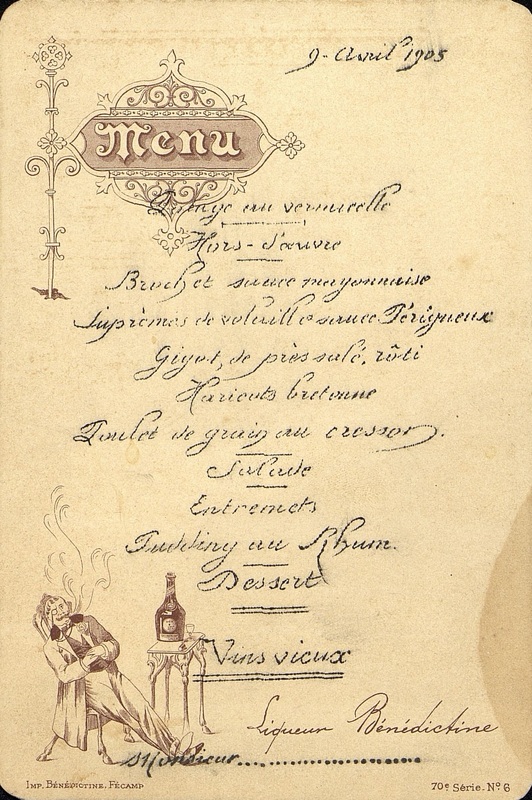 9 - Avril 1905
Menu
Potage au vermicelle
Hors-d'œuvre
Brochet sauce mayonnaise
Suprèmes de volaille sauce Périgueux
Gigot, de près salé, rôti
Haricots bretonne
Poulet de grain au cresson.
Salade
Entremets
Pudding au Rhum.
Dessert
Vins vieux
Liqueur Bénédictine
Monsieur
IMP. BÉNÉDICTINE. FÉCAMP
70e Série. No 6